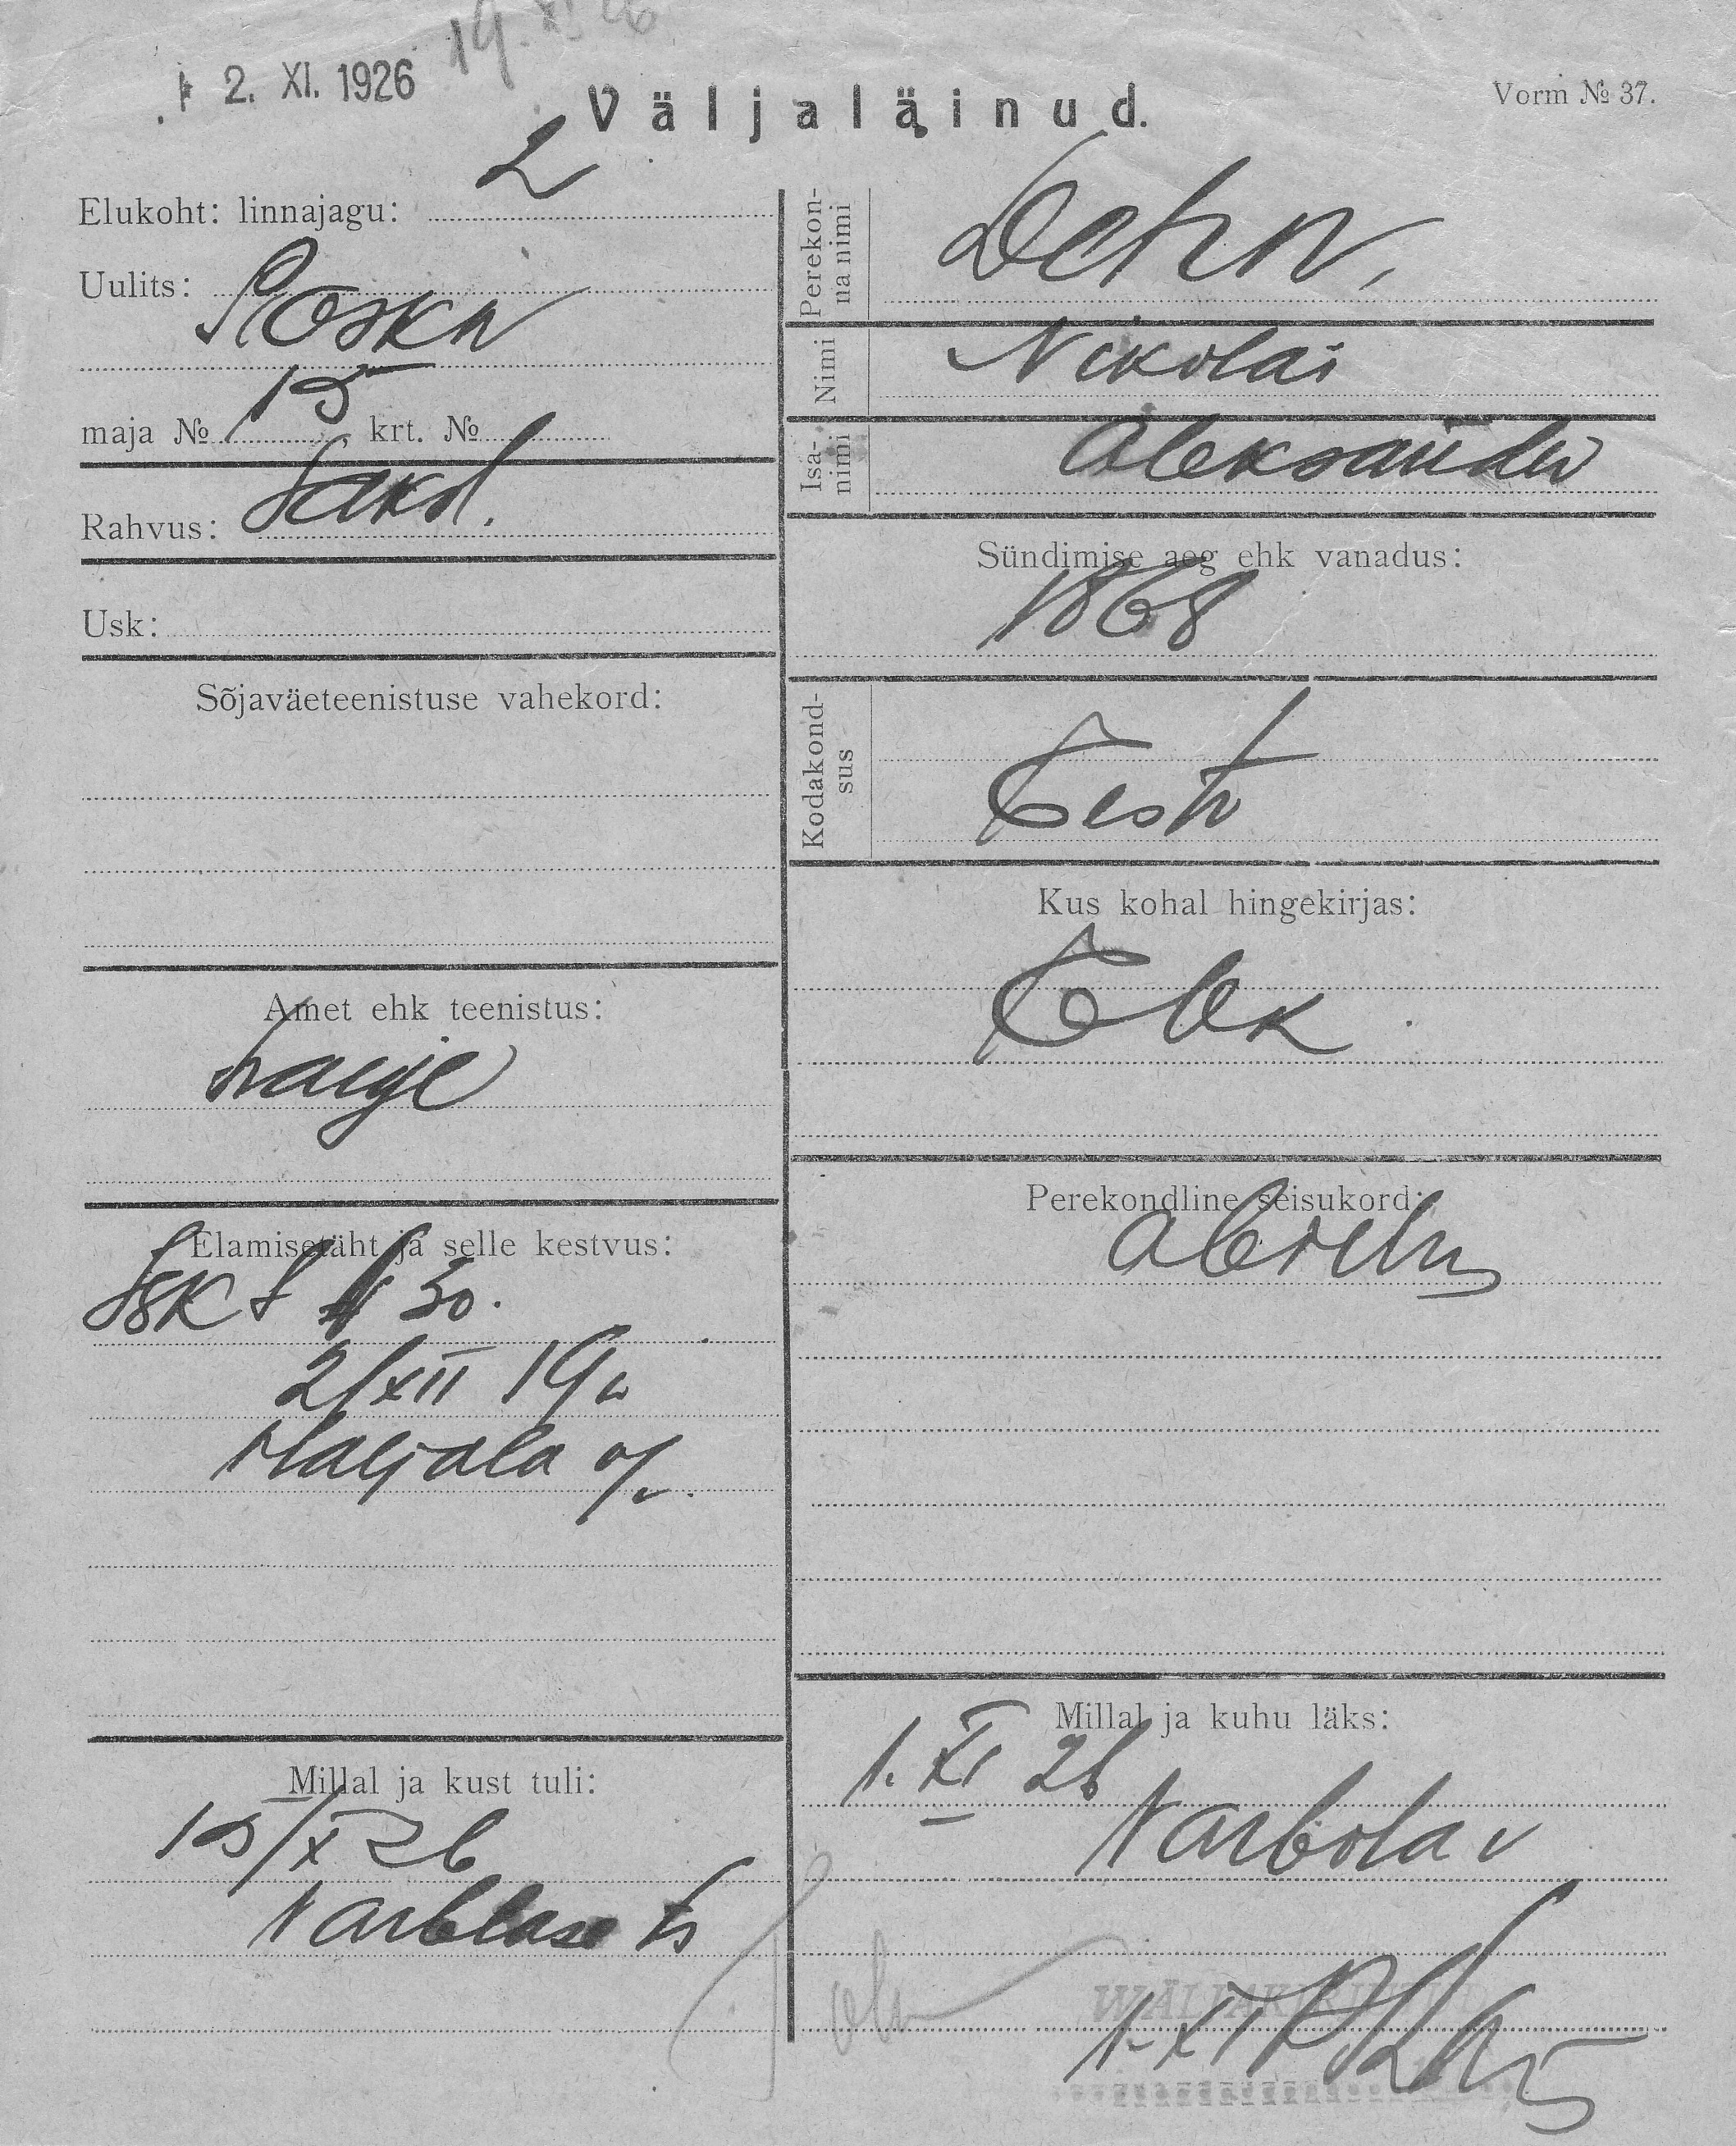 2. XI. 1926
19. XI 26
Väljaläinud.
Vorm № 37.
Elukoht: linnajagu: 2
Uulits: Poska
maja № 15, krt. №
Rahvus: Saksl.
Usk:
Sõjaväeteenistuse vahekord:
Amet ehk teenistus:
Elamisetäht ja selle kestvus:
30.
2/XII 19
Haljala v/v.
Millal ja kust tuli:
15/X 26
Narblase
Perekonna nimi
Dehn,
Nimi
Nikolai
Isanimi
Aleksander
Sündimise aeg ehk vanadus:
1868
Kodakondsus
Eesti
Kus kohal hingekirjas:
Perekondline seisukord:
abielus
Millal ja kuhu läks:
1. XI 26
Narbola v
WÄLJAKIRJUTUD
1. XI